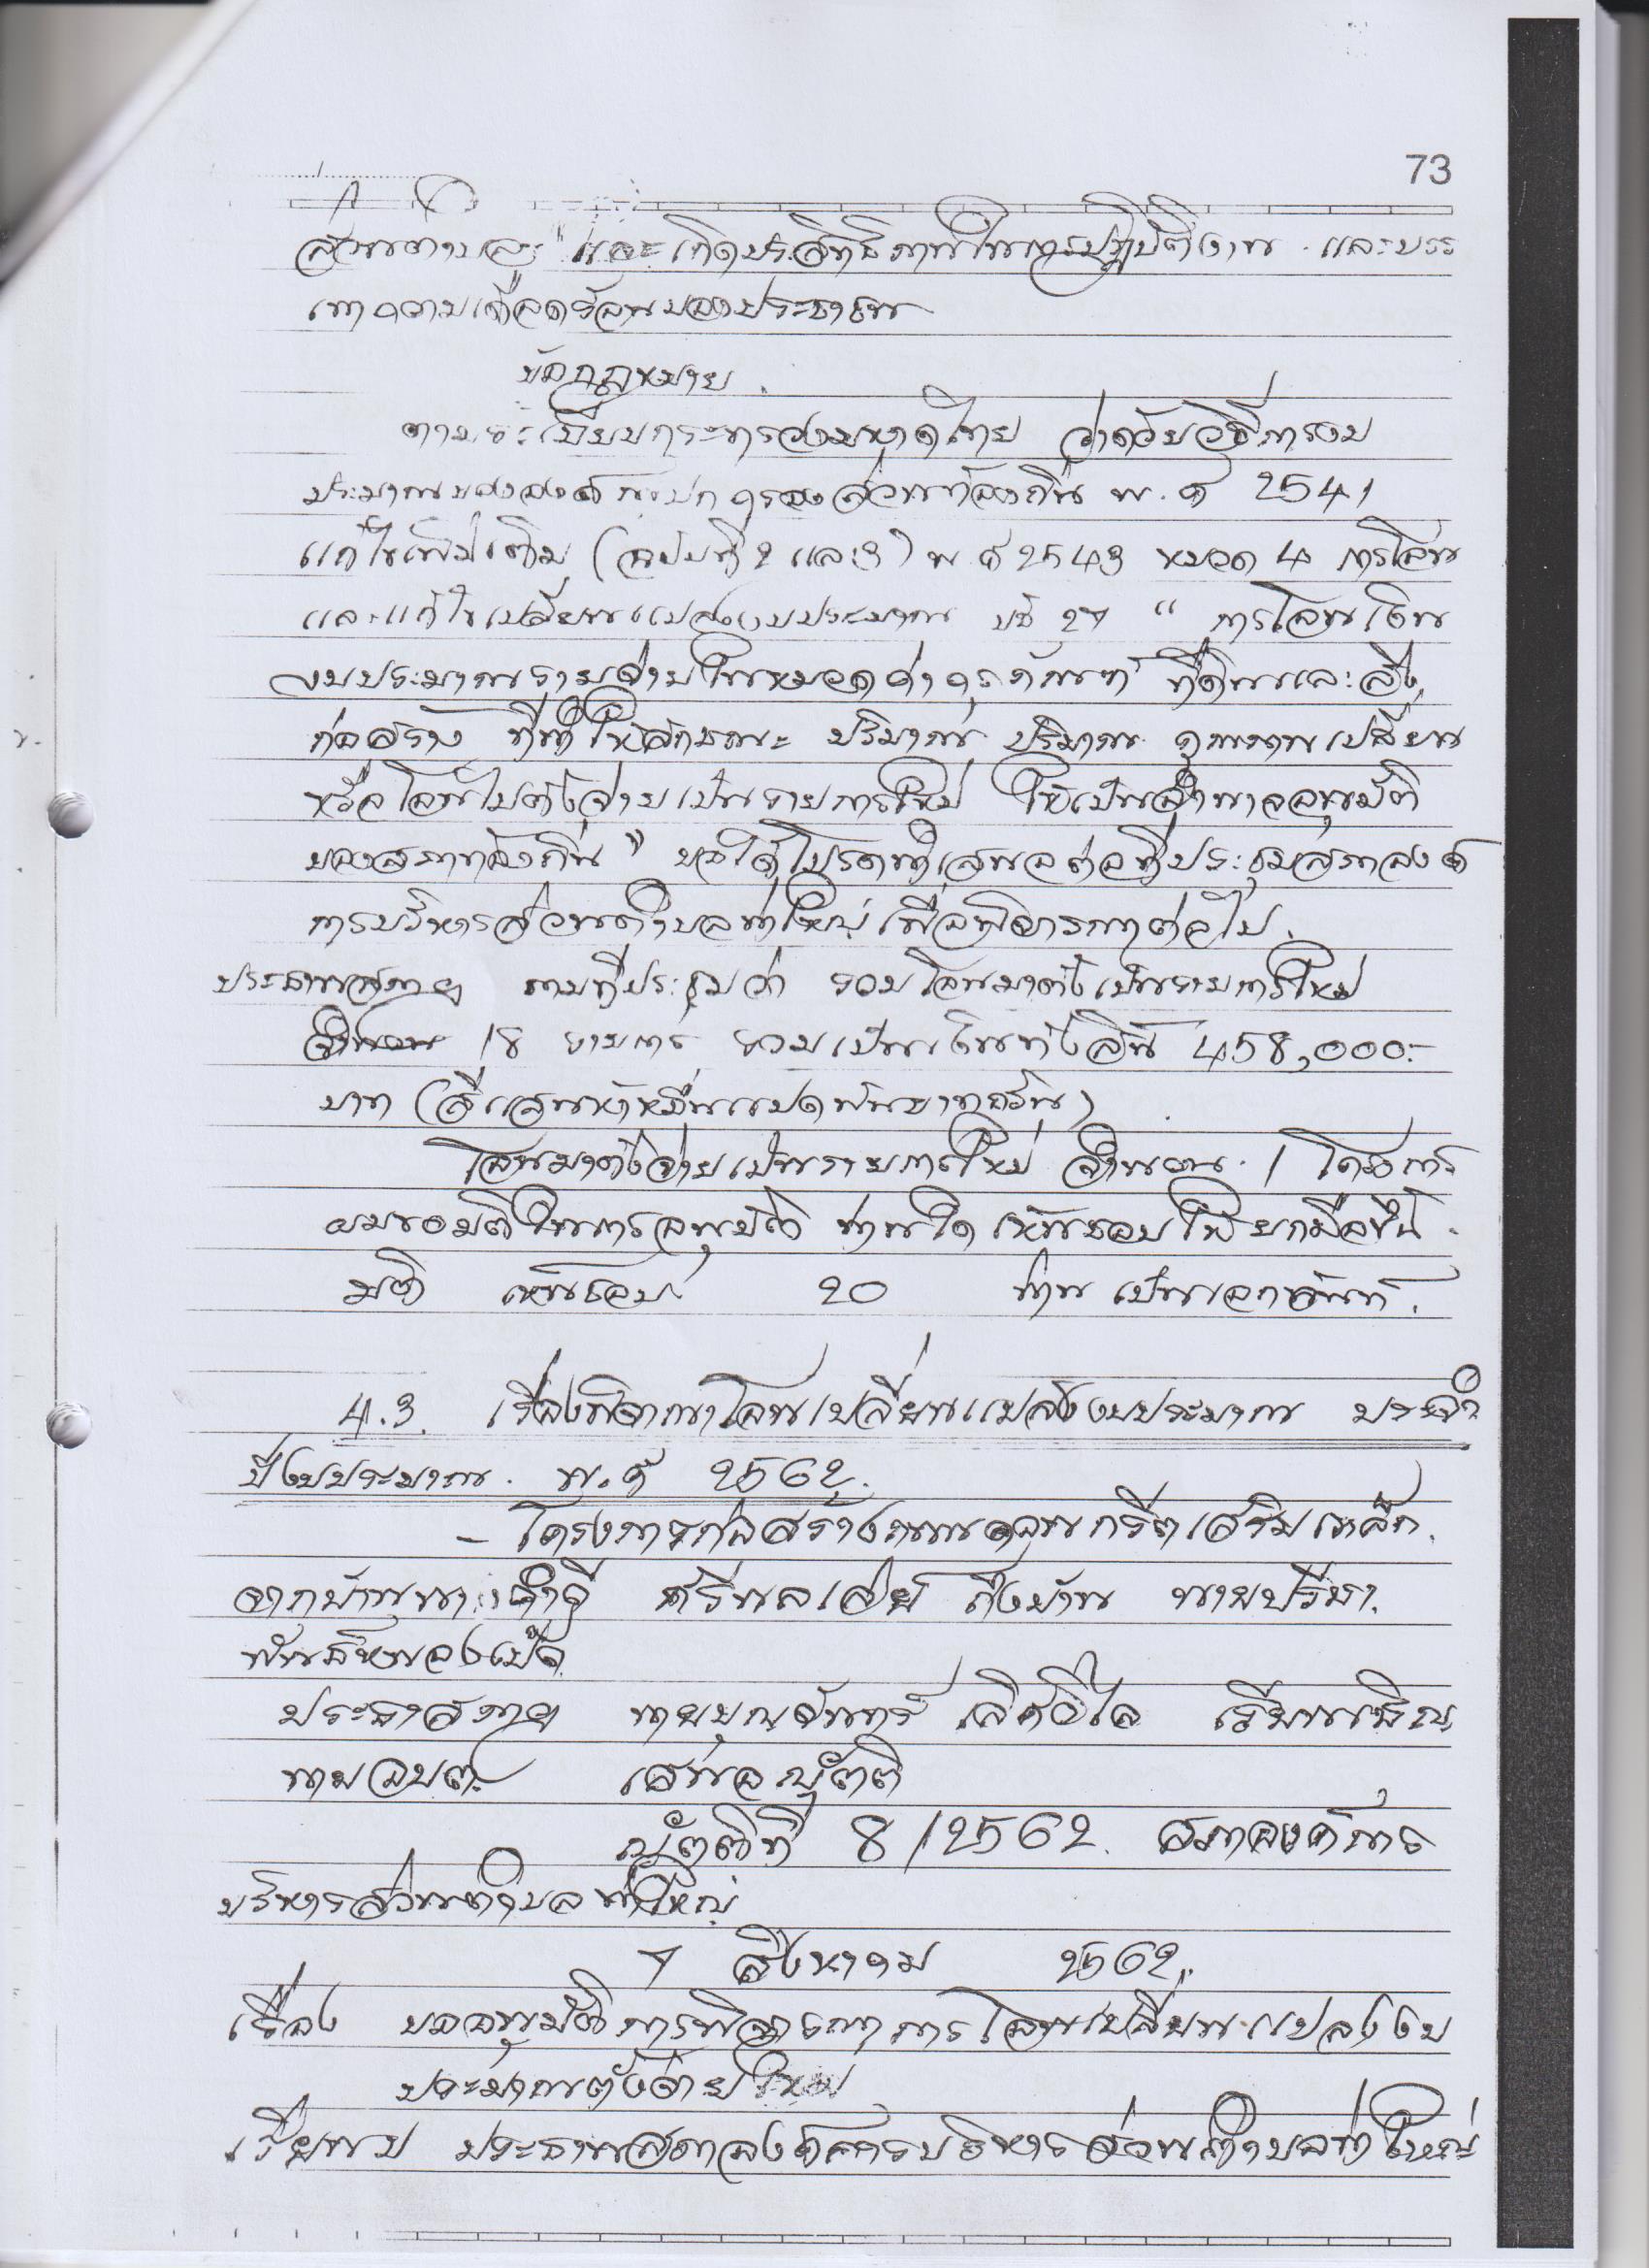 73
ส่วนตำบล และเกิดประสิทธิภาพในการปฏิบัติงาน และบรร
เทาความเดือดร้อนของประชาชน
ข้อกฎหมาย
ตามระเบียบกระทรวงมหาดไทย ว่าด้วยวิธีการงบ
ประมาณขององค์กรปกครองส่วนท้องถิ่น พ.ศ 2541
แก้ไขเพิ่มเติม (ฉบับที่ 2 และ 3) พ ศ 2543 หมวด 4 การโอน
และแก้ไขเปลี่ยนแปลงงบประมาณ ข้อ 27 " การโอนเงิน
งบประมาณรายจ่ายในหมวดค่าครุภัณฑ์ ที่ดินและสิ่ง
ก่อสร้าง ที่ทำให้ลักษณะ ปริมาณ ปริมาณ คุณภาพเปลี่ยน
หรือโอนไปตั้งจ่ายเป็นรายการใหม่ ให้เป็นอำนาจอนุมัติ
ของสภาท้องถิ่น " ขอได้โปรดนำเสนอต่อที่ประชุมสภาองค์
การบริหารส่วนตำบลท่าใหญ่ เพื่อพิจารณาต่อไป.
ประธานสภาฯ ถามที่ประชุมว่า ขอบโอนมาตั้งเป็นรายการใหม่
จำนวน 18 รายการ รวมเป็นเงินทั้งสิ้น 458,000.-
บาท (สี่แสนห้าหมื่นแปดพันบาทถ้วน)
โอนมาตั้งจ่ายเป็นรายการใหม่ จำนวน 1 โครงการ
ผมขอมติในการอนุมัติ ท่านใดเห็นชอบโปรดยกมือขึ้น
มติ เห็นชอบ 20 ท่าน เป็นเอกฉันท์.
4.3. เรื่องพิจารณาโอนเปลี่ยนแปลงงบประมาณ ประจำ
ปีงบประมาณ. พ.ศ 2562.
- โครงการก่อสร้างถนนคอนกรีตเสริมเหล็ก.
จากบ้านนาง คำปี ถึงบ้าน นายปรีชา
พันธ์หนองเป็ด
ประธานสภาฯ นายบุญจันทร์ เลิศวิไล เรียนเชิญ
นายก อบต. เสนอญัตติ
ญัตติที่ 8/2562. สภาองค์การ
บริหารส่วนตำบลท่าใหญ่
7 สิงหาคม 2562.
เรื่อง ขออนุมัติการพิจารณาการโอนเปลี่ยนแปลงงบ
ประมาณตั้งจ่ายใหม่
เรียน ประธานสภาองค์การบริหารส่วนตำบลท่าใหญ่